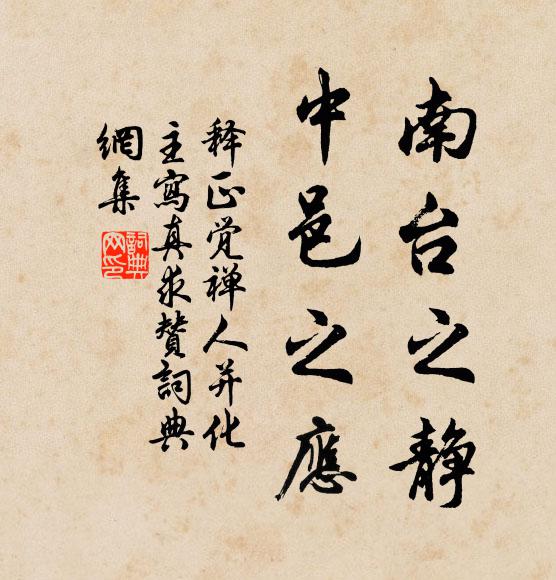 南台之静
中邑之應
释正觉禅人并化
主寫真求賛詞典
網集
詞典网印